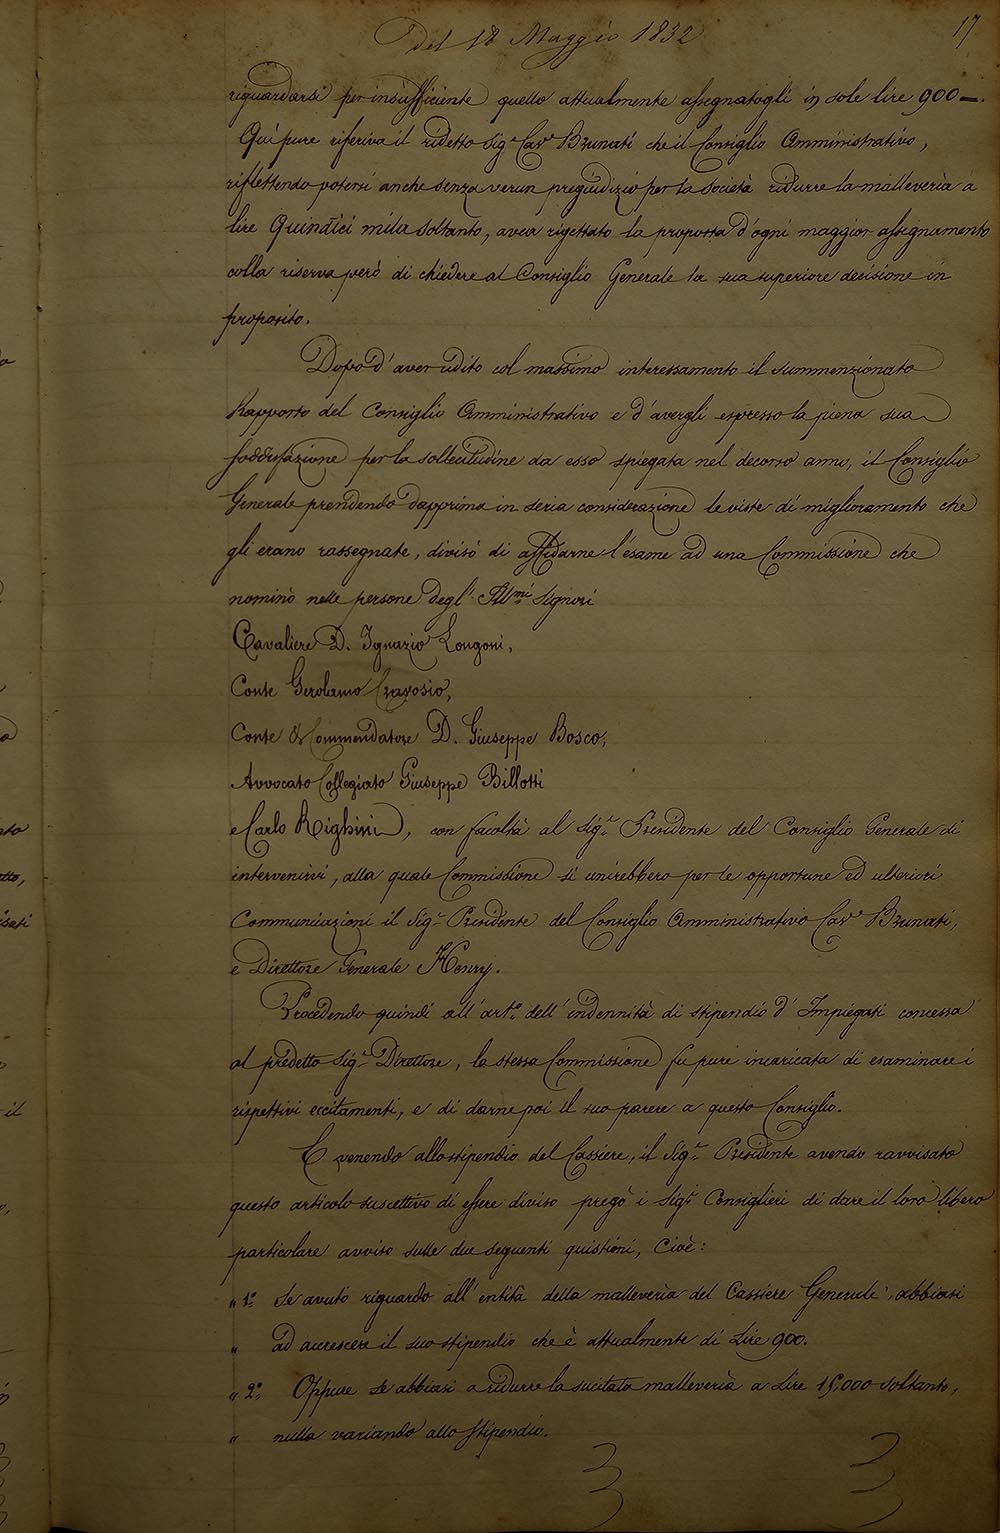 Del 18 Maggio 1832
17
riguardarsi per insufficiente quello attualmente assegnatogli in sole lire 900 —.
Quì pure riferiva il ridetto Sig.r Cav.e Brunati che il Consiglio Amministrativo,
riflettendo potersi anche senza verun pregiudizio per la Società ridurre la malleveria a
lire Quindici mila soltanto, avea rigettato la proposta d'ogni maggior assegnamento
colla riserva però di chiedere al Consiglio Generale la sua superiore decisione in
proposito.
Dopo d'aver udito col massimo interessamento il summenzionato
Rapporto del Consiglio Amministrativo e d'avergli espresso la piena sua
soddisfazione per la sollecitudine da esso spiegata nel decorso anno, il Consiglio
Generale prendendo dapprima in seria considerazione le viste di miglioramento che
gli erano rassegnate, divisò di affidarne l'esame ad una Commissione che
nominò nelle persone degl'Ill.mi Signori
Cavaliere D. Ignazio Longoni,
Conte Gerolamo Cravosio,
Conte & Commendatore D. Giuseppe Bosco,
Avvocato Collegiato Giuseppe Billotti
e Carlo Righini, con facoltà al Sig.r Presidente del Consiglio Generale di
intervenirvi, alla quale Commissione si unirebbero per le opportune ed ulteriori
Communicazioni il Sig.r Presidente del Consiglio Amministrativo Cav.e Brunati,
e Direttore Generale Henry.
Procedendo quindi all'art.o dell'indennità di stipendio d'Impiegati concessa
al predetto Sig.r Direttore, la stessa Commissione fu pure incaricata di esaminare i
rispettivi eccitamenti, e di darne poi il suo parere a questo Consiglio.
E venendo allo stipendio del Cassiere, il Sig.r Presidente avendo ravvisato
questo articolo suscettivo di essere diviso pregò i Sig.ri Consiglieri di dare il loro libero
particolare avviso sulle due seguenti quistioni, Cioè:
" 1.o Se avuto riguardo all'entità della malleveria del Cassiere Generale, abbiasi
" ad accrescere il suo stipendio che è attualmente di Lire 900.
" 2.o Oppure se abbiasi a ridurre la sucitata malleveria a Lire 15,000 soltanto,
" nulla variando allo stipendio.